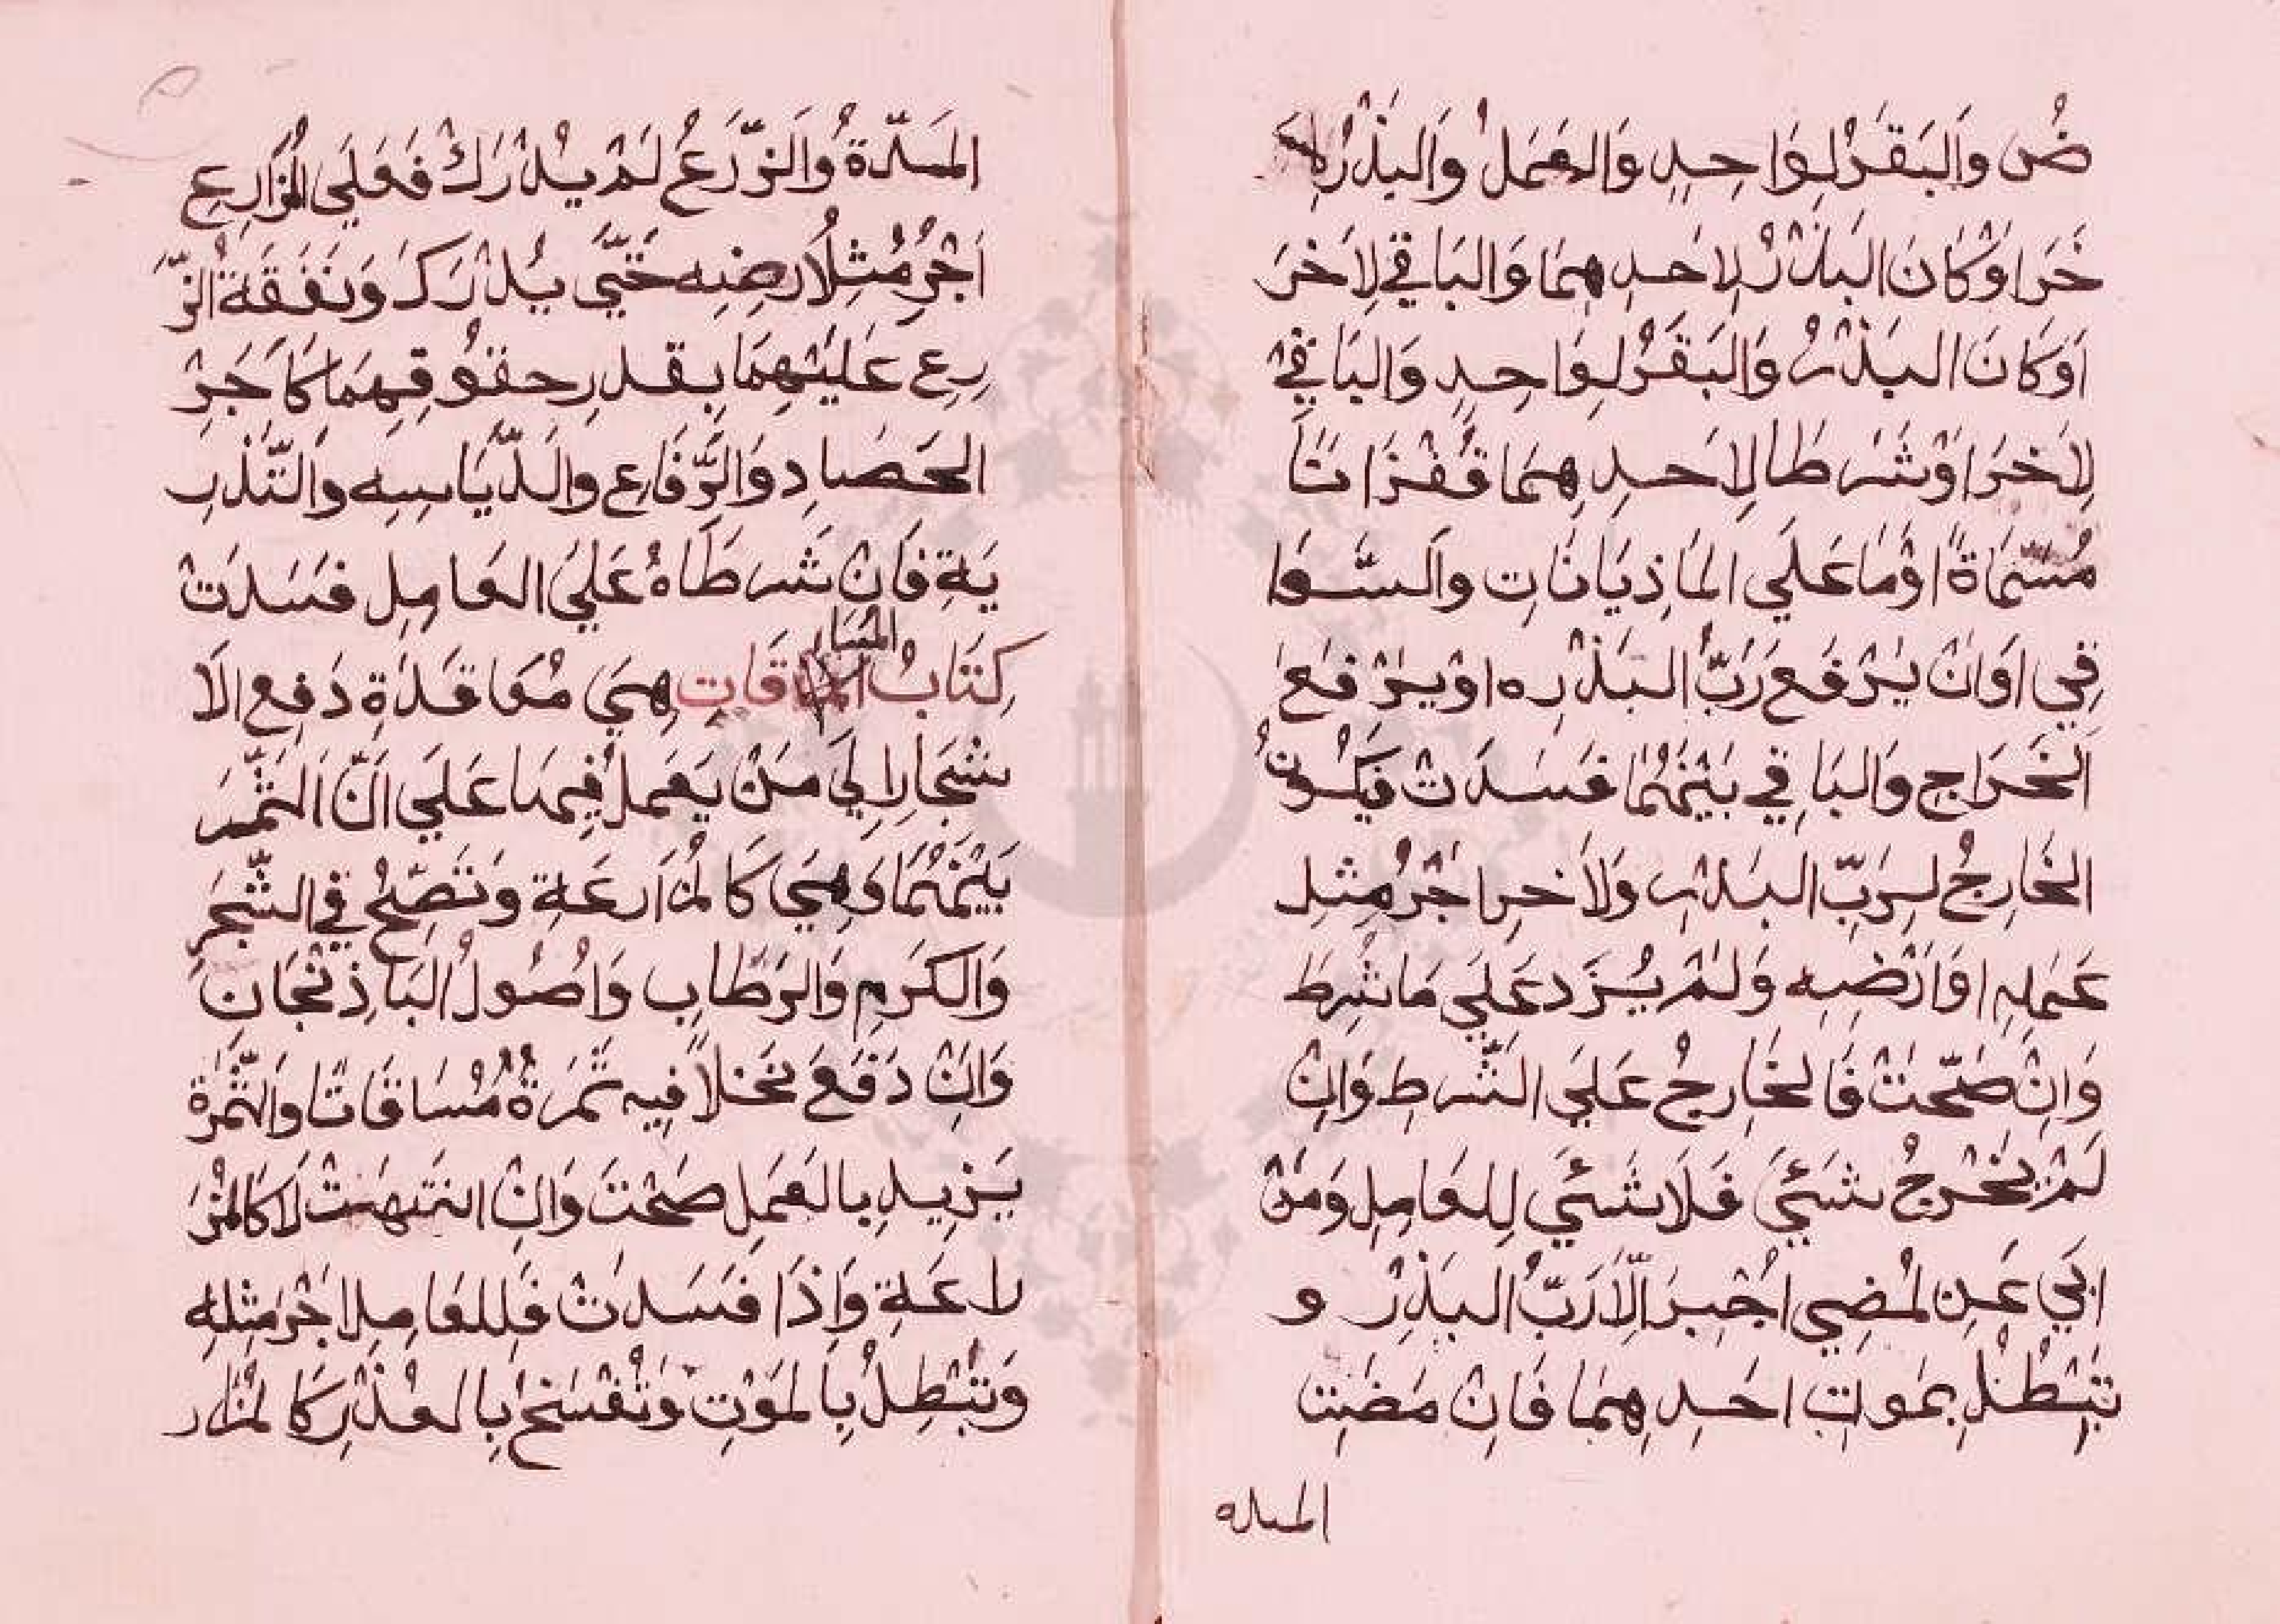 ضُ وَالبَقَرُ لِوَاحِدٍ وَالعَمَلُ وَالبَذْرُ لِاَ
خَرَ اَوْ كَانَ البَذْرُ لِاَحَدِهِمَا وَالبَاقِي لِاَخَرَ
اَوْ كَانَ البَذْرُ وَالبَقَرُ لِوَاحِدٍ وَالبَاقِيْ
لِاَخَرَ اَوْ شَرَطَا لِاَحَدِهِمَا قُفْزَاتًا
مُسَّمَاةً اَوْ مَا عَلَي المَاذِيَانَاتِ وَالسَّوَا
قِي اَوْ اَنْ يَرْفَعَ رَبُّ البَذْرِه اَوْ يَرْفَعَ
الخَرَاجِ وَالبَاقِي بَيْنَهُمَا فَسَدَتْ فَيَكُوْنُ
الخَارِجُ لِرَبِّ البَذْرِ وَلاَخِرِ اَجْرُ مِثْلِ
عَمَلِهِ اَوْ اَرْضِهِ وَلَمْ يُزَد عَلَي مَا شُرِطَ
وَاِنْ صَحَّتْ فَالخَارِجُ عَلَي الشَّرطِ وَاِنْ
لَمْ يَخْرُجْ شَيْئَ فَلَا شَيْئَ لِلعَامِلِ وَمَنْ
اَبَي عَنِ لمُضِي اُجْبِرَ اِلَّا رَبُّ البَذْرِ و
تَبْطُلُ بِمَوتِ اَحَدِهِمَا فَاِنْ مَضَتِ
المده
المَدّةُ وَالزّرَعُ لَمْ يُدْرَكْ فَعَلَي المُزَارِعِ
اَجْرُ مُثِلُ ارضِه حَتَّي يُدْرَكَ وَنَفَقَةُ الزَّ
رِع عَلَيْهِمَا بِقَدرِ حقُوقِهِمَا كَاَجَرْ
الحَصَادِ وَالرَّفَاعِ والدِّيَاسِه وَالتّذْرِ
يَةِ فَاِنْ شَرطَاهُ عَلَي العَامِلِ فَسَدَتْ
كِتَابُ المُسَاقَاتِ هِيَ مُعَاقَدَةِ دَفعِ الاَ
شْجَارِ اِلَي مَنْ يَعْمَلُ فِيهَا عَلَي اَنَّ الثَّمَرَ
بَيْنَهُمَا وَهِيَ كَالمُزَارعَةِ وَتَصِّحُ فِي الشَّجَرِ
وَالكَرمِ وَالرَطَابِ وَاُصُولُ البَاذِنْجَانِ
وَاِنْ دَفَعَ نَخلاً فِيه ثَمَرَةُ مُسَاقَاتًا وَالثّمَرَةُ
يَزِيدِ بِالعَمَلِ صَحْتَ وَاِنْ انتَهَتْ لَا كَالمُزَ
ارعَةِ وَاِذَا فَسَدَتْ فَلِلعَامِلِ اَجْرَ مِثلِهِ
وَتَبْطِلُ بِالمَوْتِ وَتُفْسَخُ بِالعُذْرِ كَالمُزَار